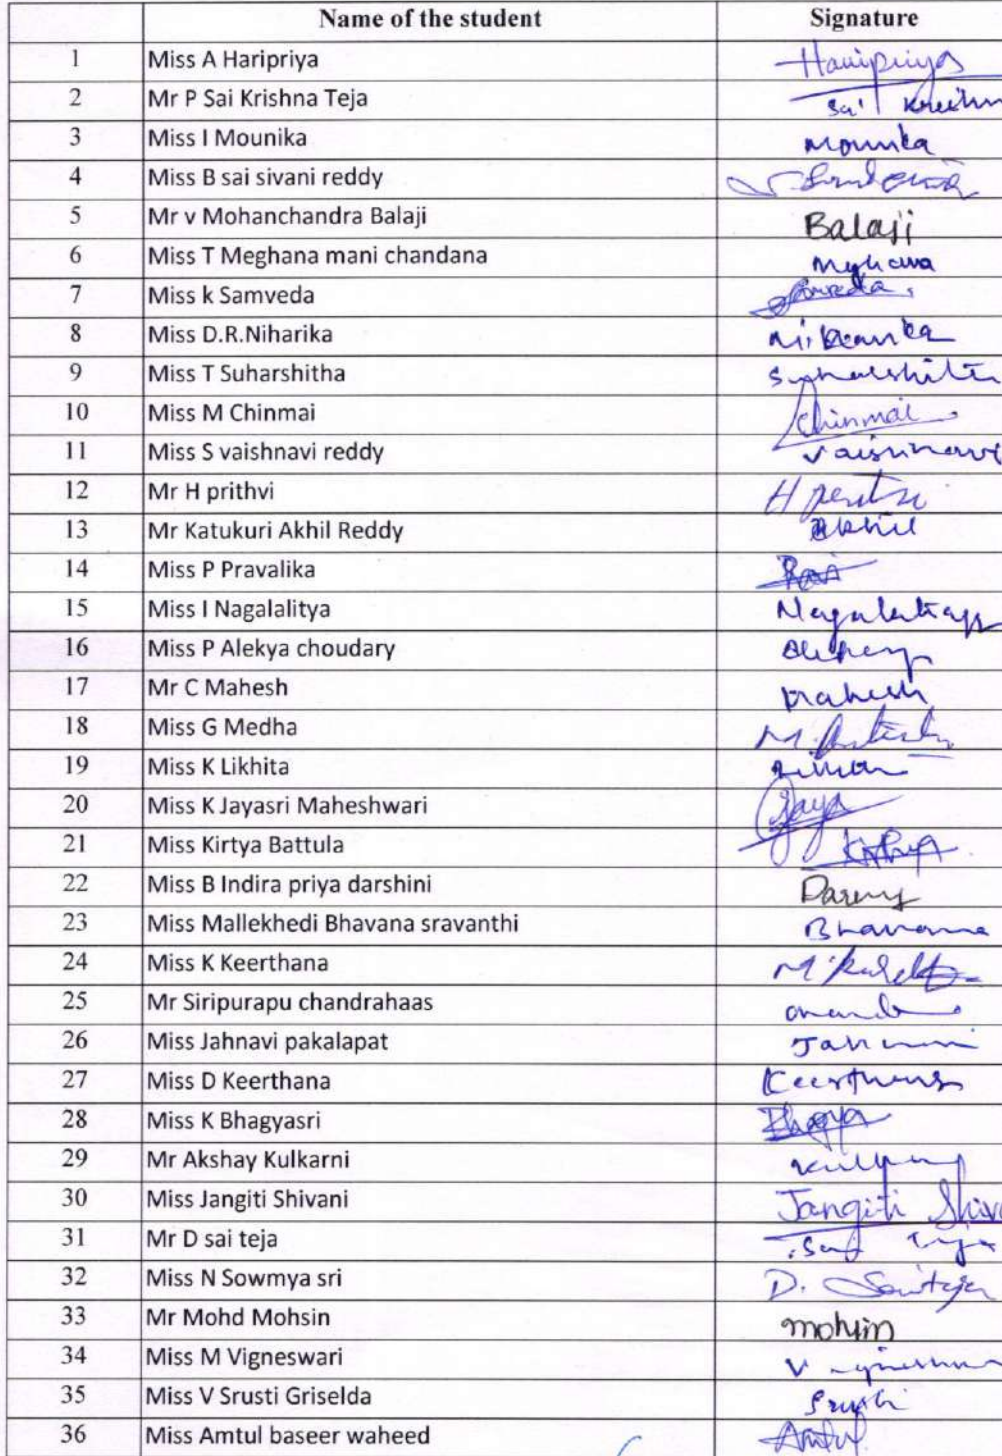 Name of the student Signature
1 Miss A Haripriya Haripriya
2 Mr P Sai Krishna Teja Sai
3 Miss I Mounika Mounika
4 Miss B sai sivani reddy
5 Mr v Mohanchandra Balaji Balaji
6 Miss T Meghana mani chandana
7 Miss k Samveda
8 Miss D.R.Niharika
9 Miss T Suharshitha
10 Miss M Chinmai Chinmai
11 Miss S vaishnavi reddy
12 Mr H prithvi H
13 Mr Katukuri Akhil Reddy Akhil
14 Miss P Pravalika
15 Miss I Nagalalitya
16 Miss P Alekya choudary
17 Mr C Mahesh Mahesh
18 Miss G Medha
19 Miss K Likhita
20 Miss K Jayasri Maheshwari Jaya
21 Miss Kirtya Battula
22 Miss B Indira priya darshini
23 Miss Mallekhedi Bhavana sravanthi Bhavana
24 Miss K Keerthana
25 Mr Siripurapu chandrahaas
26 Miss Jahnavi pakalapat
27 Miss D Keerthana
28 Miss K Bhagyasri Bhagya
29 Mr Akshay Kulkarni
30 Miss Jangiti Shivani Jangiti
31 Mr D sai teja
32 Miss N Sowmya sri D. Saiteja
33 Mr Mohd Mohsin mohsin
34 Miss M Vigneswari
35 Miss V Srusti Griselda
36 Miss Amtul baseer waheed Amtul